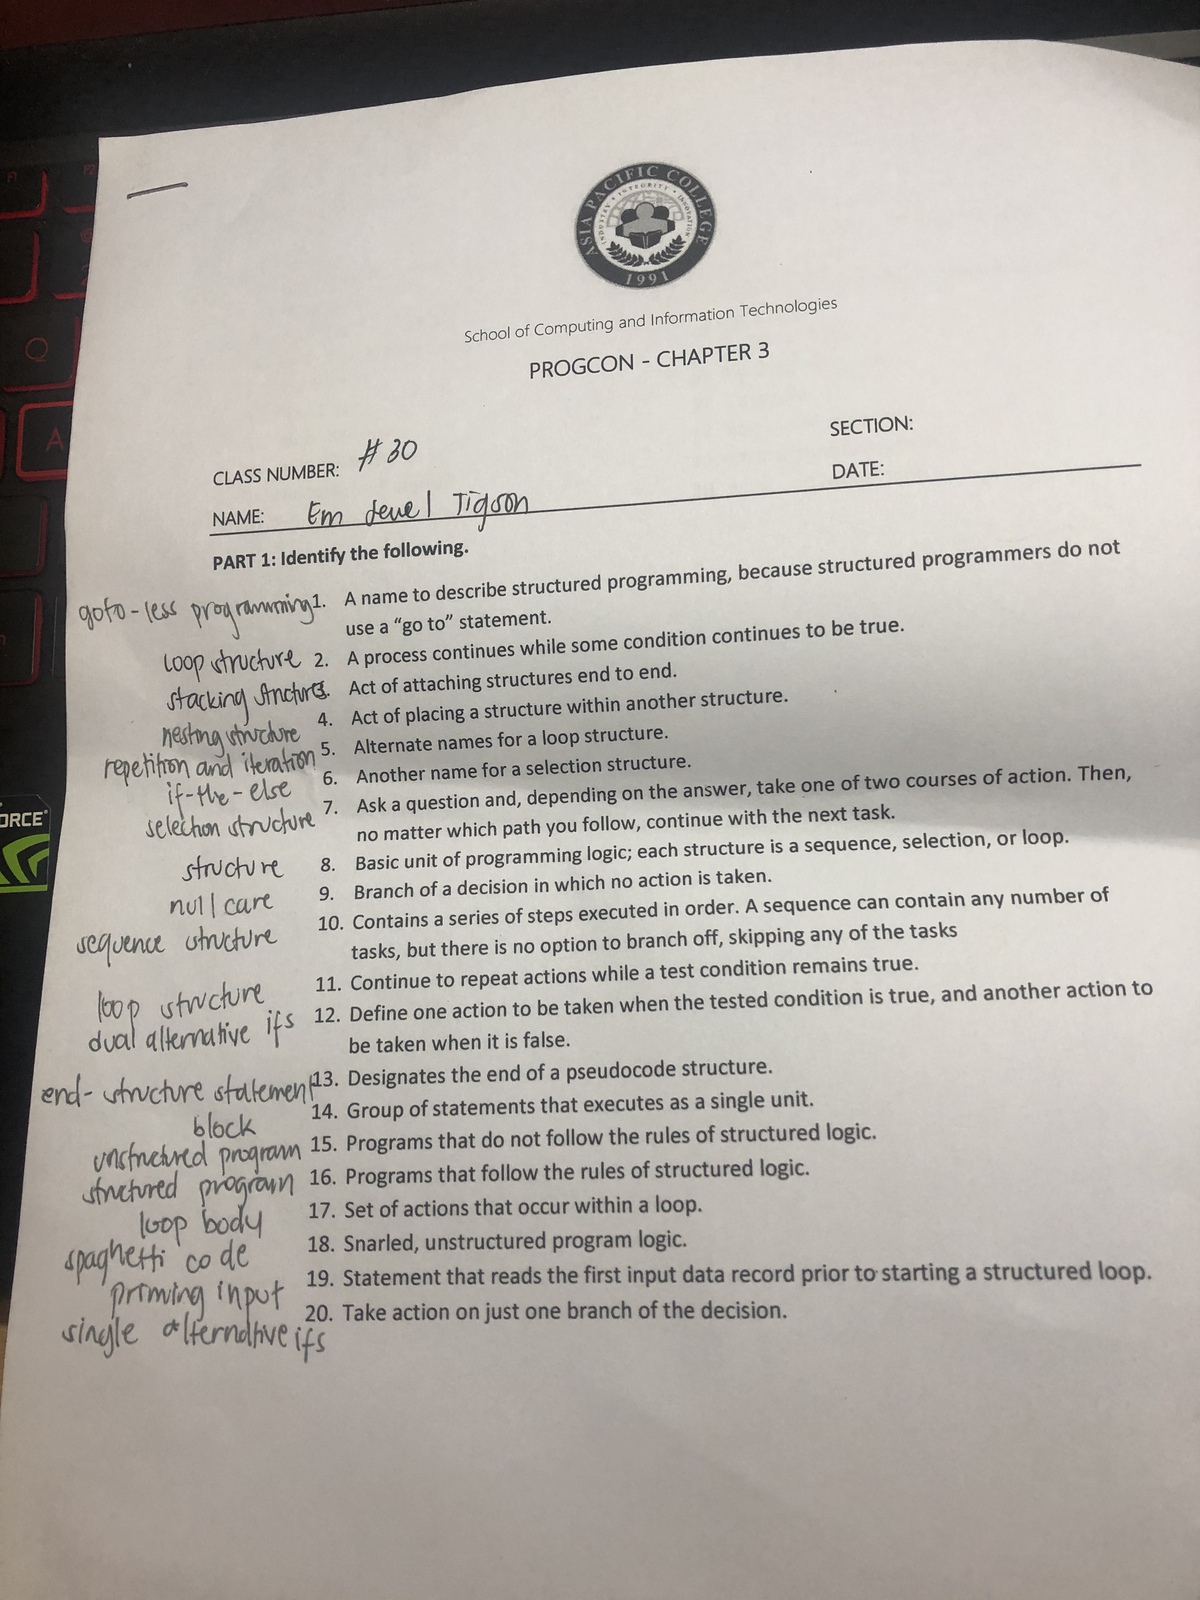 ASIA PACIFIC COLLEGE
INDUSTRY • INTEGRITY • INNOVATION
1991
School of Computing and Information Technologies
PROGCON - CHAPTER 3
SECTION:
CLASS NUMBER: #30
DATE:
NAME: Em Jewel Tigson
PART 1: Identify the following.
goto-less programming 1. A name to describe structured programming, because structured programmers do not
use a “go to” statement.
loop structure 2. A process continues while some condition continues to be true.
stacking structure 3. Act of attaching structures end to end.
nesting structure 4. Act of placing a structure within another structure.
repetition and iteration 5. Alternate names for a loop structure.
if-the-else 6. Another name for a selection structure.
selection structure 7. Ask a question and, depending on the answer, take one of two courses of action. Then,
no matter which path you follow, continue with the next task.
structure 8. Basic unit of programming logic; each structure is a sequence, selection, or loop.
null care 9. Branch of a decision in which no action is taken.
sequence structure 10. Contains a series of steps executed in order. A sequence can contain any number of
tasks, but there is no option to branch off, skipping any of the tasks
loop structure 11. Continue to repeat actions while a test condition remains true.
dual alternative ifs 12. Define one action to be taken when the tested condition is true, and another action to
be taken when it is false.
end-structure statement 13. Designates the end of a pseudocode structure.
block 14. Group of statements that executes as a single unit.
unstructured program 15. Programs that do not follow the rules of structured logic.
structured program 16. Programs that follow the rules of structured logic.
loop body 17. Set of actions that occur within a loop.
spaghetti code 18. Snarled, unstructured program logic.
priming input 19. Statement that reads the first input data record prior to starting a structured loop.
single alternative ifs 20. Take action on just one branch of the decision.
F1
F2
Q
A
ORCE